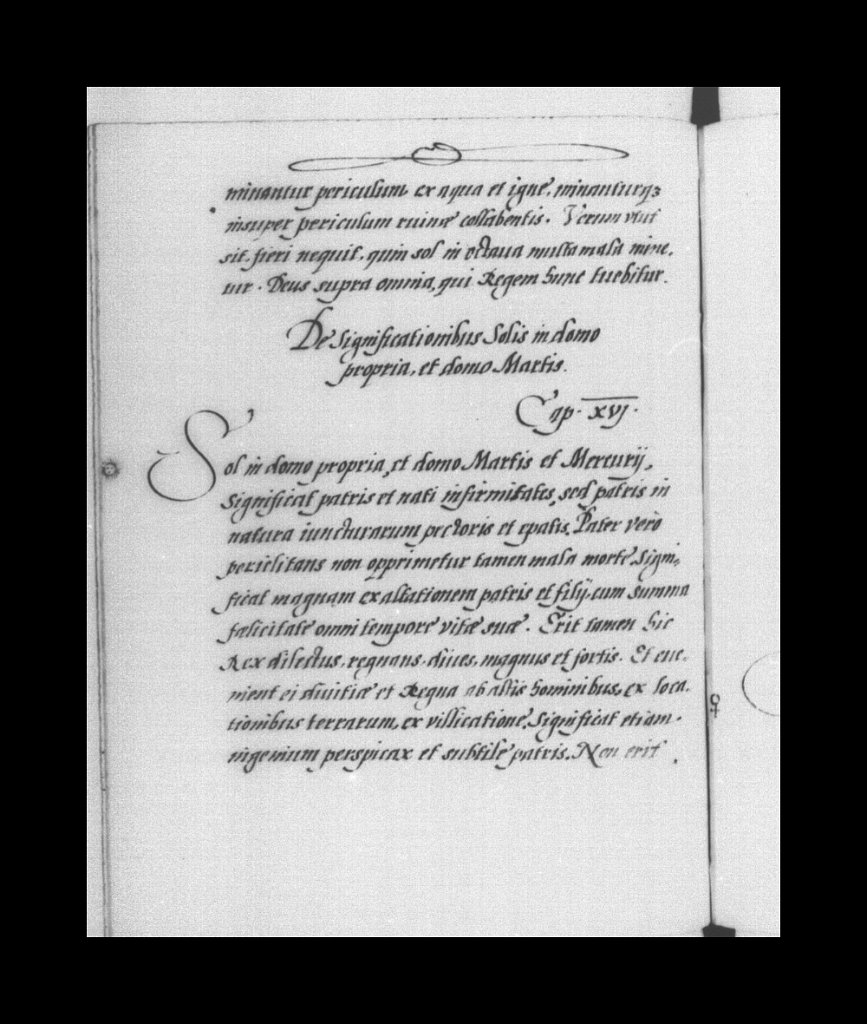 minantur periculum ex aqua et igne, minanturq3
insuper periculum ruinæ collabentis. Verum
sit, fieri nequit, quin sol in octaua multa mala mine,
tur. Deus supra omnia, qui Regem hunc tuebitur.
De Significationibus Solis in domo
propria, et domo Martis.
Cap. xvj.
Sol in domo propria, et domo Martis et Mercurij,
Significat patris et nati infirmitates, sed patris in
natura iuncturarum pectoris et epatis. Pater vero
periclitans non opprimetur tamen mala morte. Signi,
ficat magnam exaltationem patris et filij, cum summa
fælicitate omni tempore vitæ suæ. Erit tamen hic
Rex dilectus, regnans, diues, magnus et fortis. Et eue,
nient ei diuitiæ et Regna ab altis hominibus, ex loca,
tionibus terrarum, ex villicatione, Significat etiam
ingenium perspicax et subtile patris. Non erit
♀